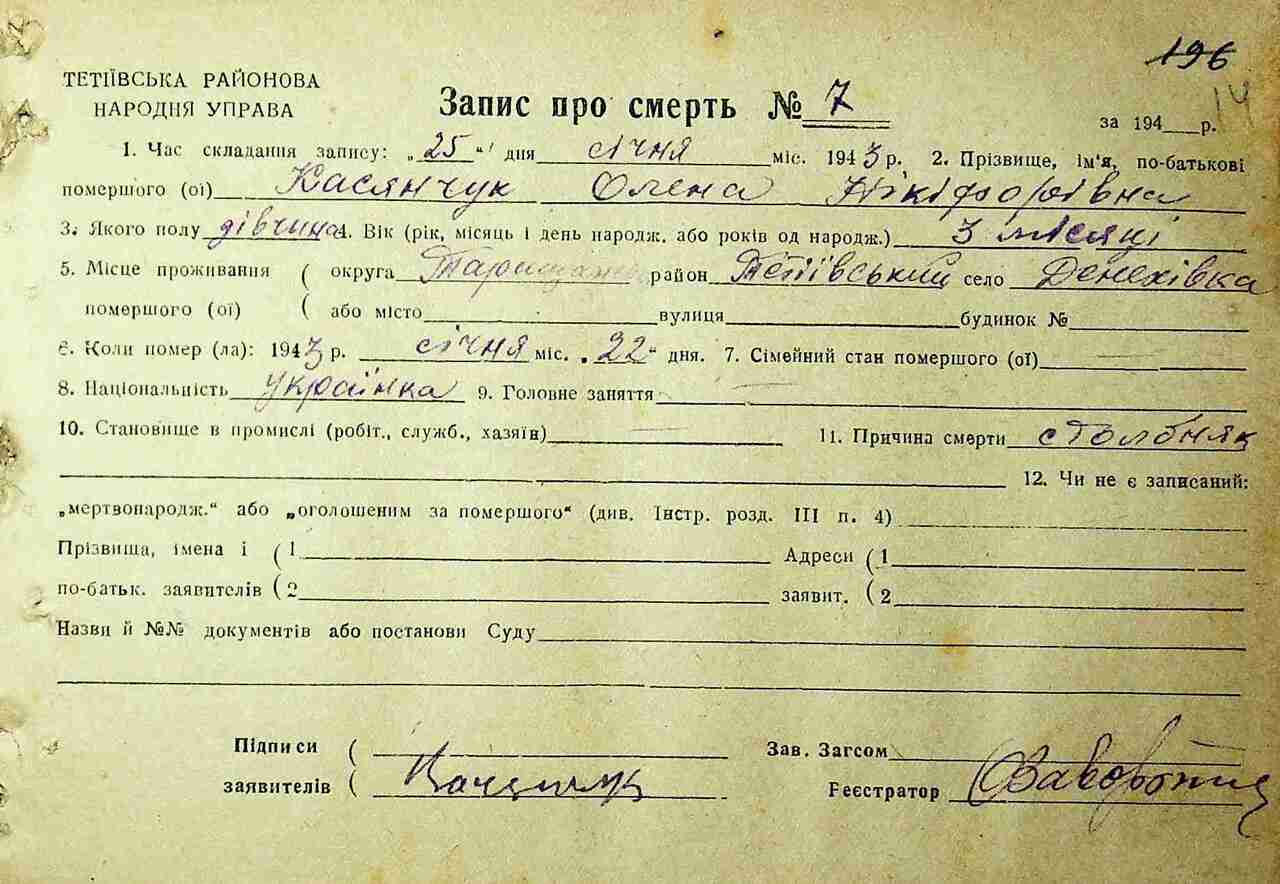 196
14
ТЕТІЇВСЬКА РАЙОНОВА
НАРОДНЯ УПРАВА
Запис про смерть № 7
за 194 р.
1. Час складання запису: „25“ дня січня міс. 1943 р. 2. Прізвище, ім'я, по-батькові
помершого (ої) Касянчук Олена Нікіфорівна
3. Якого полу дівчина 4. Вік (рік, місяць і день народж. або років од народж.) 3 місяці
5. Місце проживання ( округа район Тетіївський село Денехівка
помершого (ої) ( або місто вулиця будинок №
6. Коли помер (ла): 1943 р. січня міс. „22“ дня. 7. Сімейний стан помершого (ої)
8. Національність українка 9. Головне заняття
10. Становище в промислі (робіт., служб., хазяїн) 11. Причина смерти столбняк
12. Чи не є записаний:
„мертвонародж.“ або „оголошеним за помершого“ (див. Інстр. розд. III п. 4)
Прізвища, імена і ( 1 Адреси ( 1
по-батьк. заявителів ( 2 заявит. ( 2
Назви й №№ документів або постанови Суду
Підписи ( Зав. Загсом
заявителів ( Реєстратор